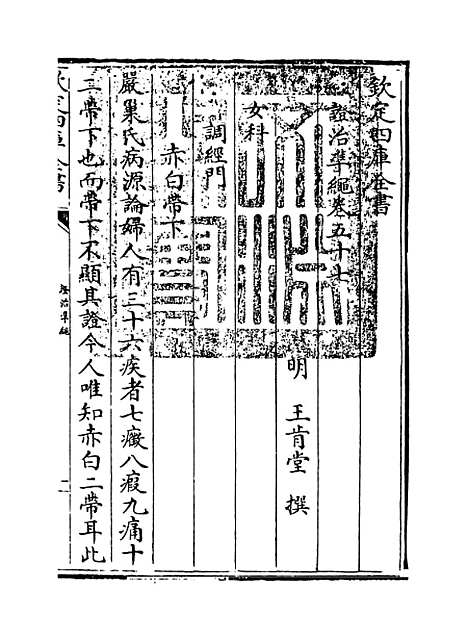 欽定四庫全書
證治準繩卷五十七
明 王肯堂 撰
女科
調經門
赤白帶下
嚴巢氏病源論婦人有三十六疾者七癥八瘕九痛十
二帶下也而帶下不顯其證今人唯知赤白二帶耳此
欽定四庫全書
證治準繩